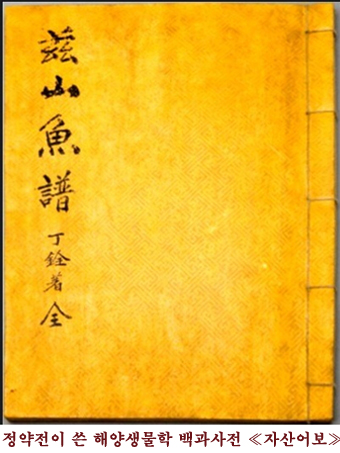 玆山魚譜
丁銓著 全
정약전이 쓴 해양생물학 백과사전 ≪자산어보≫